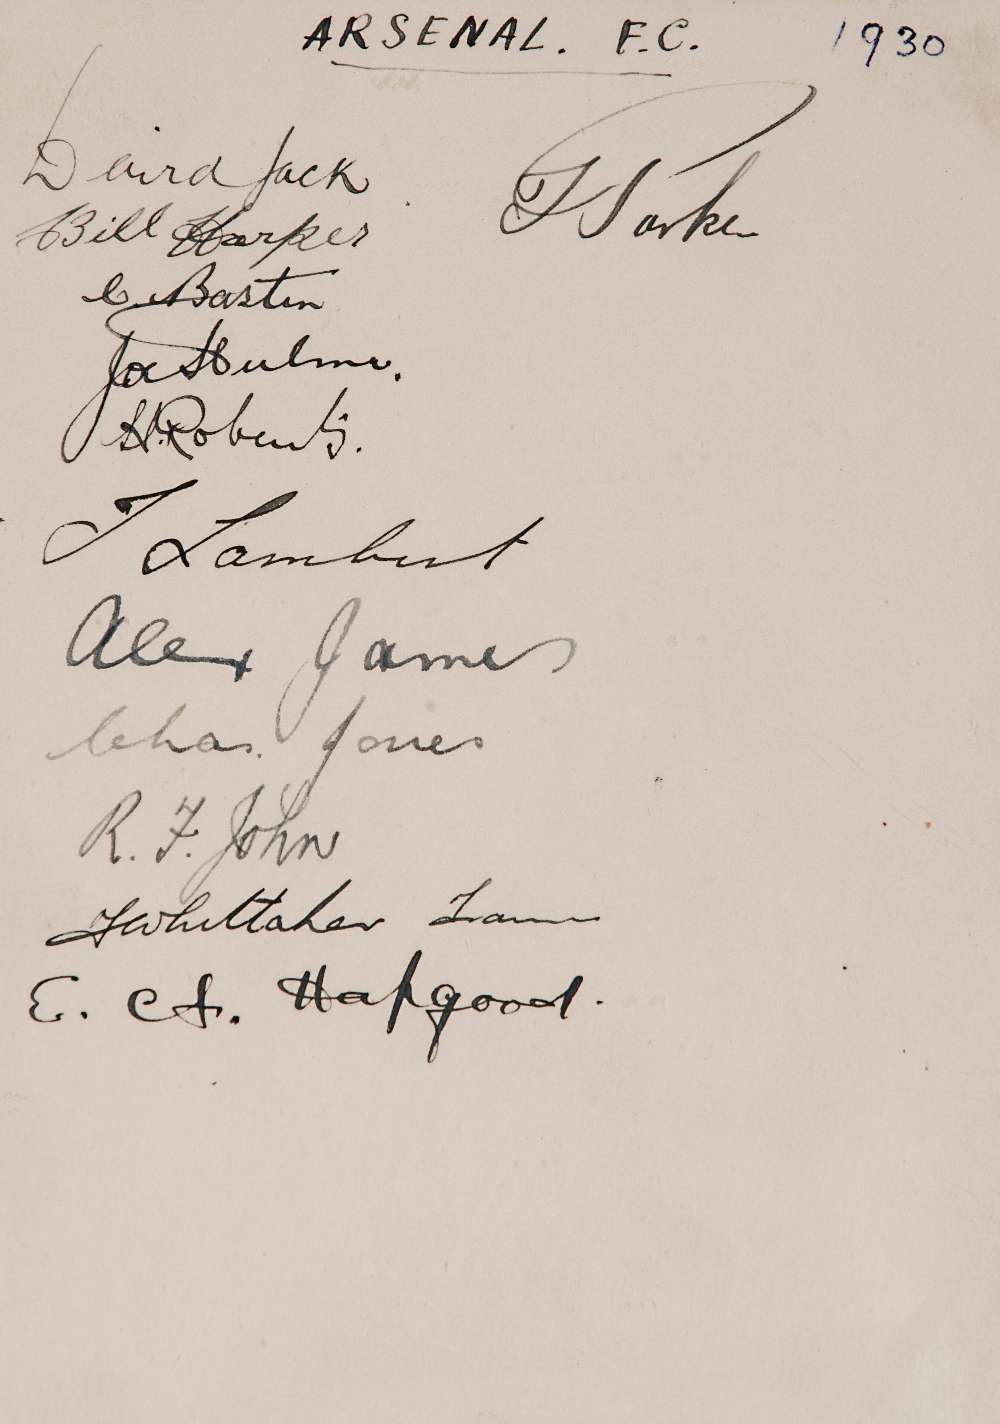 ARSENAL. F.C. 1930
David Jack
T Parker
Bill Harper
C. Bastin
Joe Hulme.
H. Roberts.
J Lambert
Alex James
Chas. Jones
R. F. John
T Whittaker
E. C. A. Hapgood.